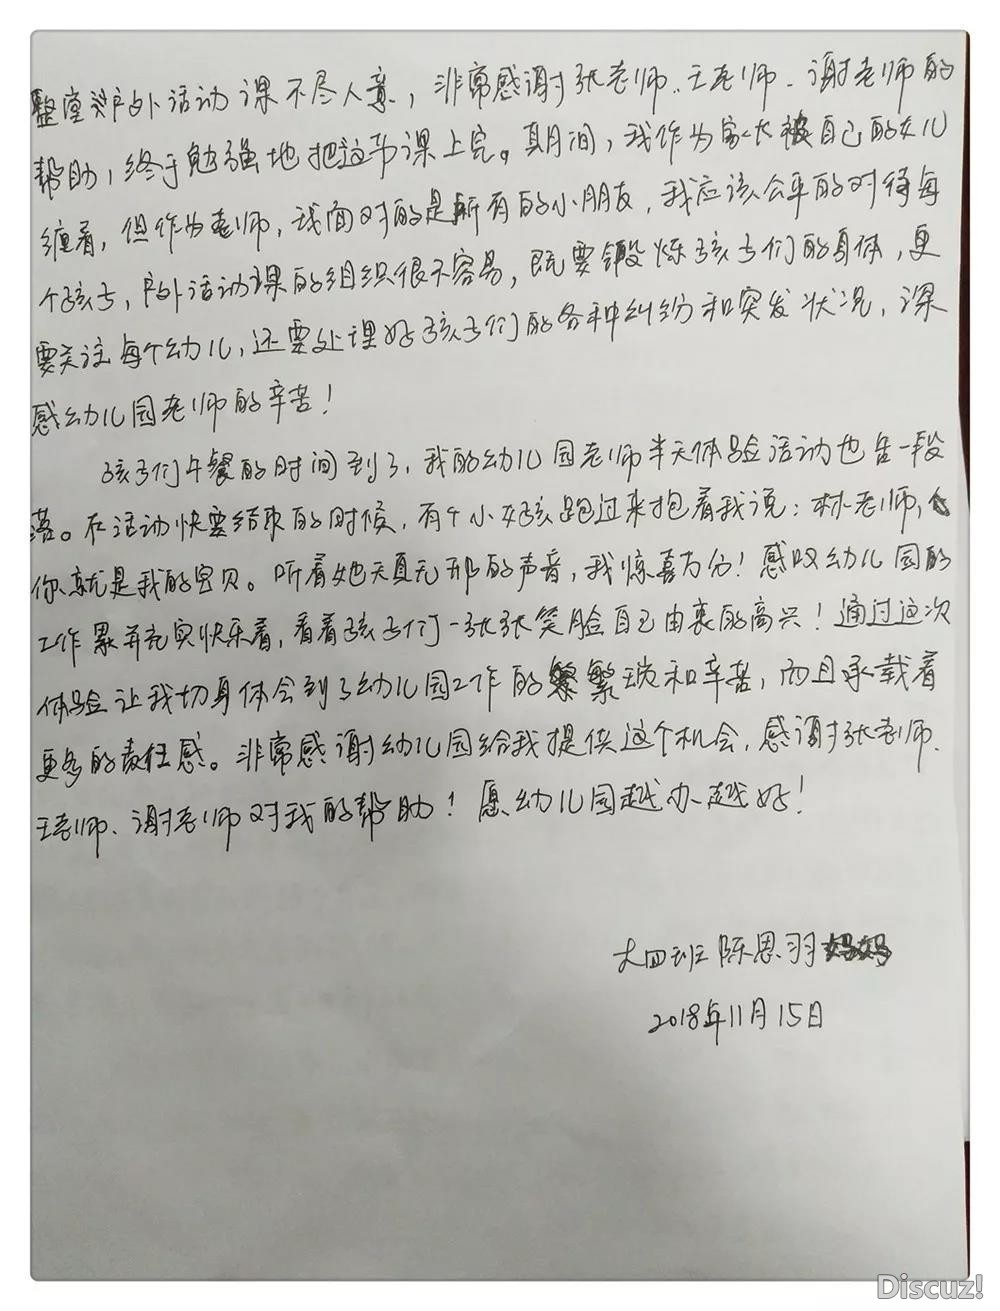 整堂户外活动课不尽人意，非常感谢张老师、王老师、谢老师的
帮助，终于勉强地把这节课上完。期间，我作为家长被自己的女儿
缠着，但作为老师，我面对的是所有的小朋友，我应该公平的对待每
个孩子，户外活动课的组织很不容易，既要锻炼孩子们的身体，更
要关注每个幼儿，还要处理好孩子们的各种纠纷和突发状况，深
感幼儿园老师的辛苦！
孩子们午餐的时间到了，我的幼儿园老师半天体验活动也告一段
落。在活动快要结束的时候，有个小女孩跑过来抱着我说：林老师，
你就是我的宝贝。听着她天真无邪的声音，我惊喜万分！感叹幼儿园的
工作累并充实快乐着，看着孩子们一张张笑脸自己由衷的高兴！通过这次
体验让我切身体会到了幼儿园工作的繁琐和辛苦，而且承载着
更多的责任感。非常感谢幼儿园给我提供这个机会，感谢张老师、
王老师、谢老师对我的帮助！愿幼儿园越办越好！
大四班 陈恩羽妈妈
2018年11月15日
Discuz!